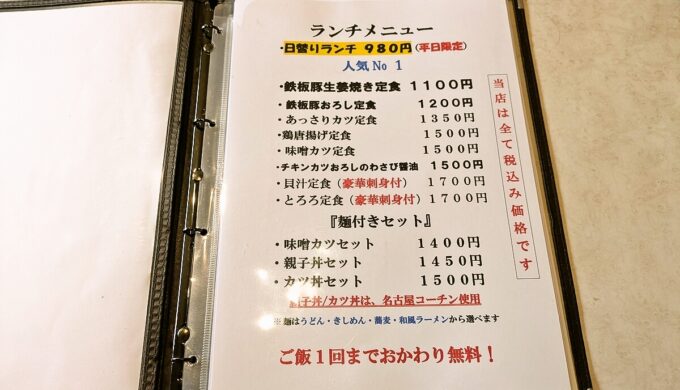 ランチメニュー
・日替りランチ 980円(平日限定)
人気№ 1
・鉄板豚生姜焼き定食 1100円
・鉄板豚おろし定食 1200円
・あっさりカツ定食 1350円
・鶏唐揚げ定食 1500円
・味噌カツ定食 1500円
・チキンカツおろしのわさび醤油 1500円
・貝汁定食(豪華刺身付) 1700円
・とろろ定食(豪華刺身付) 1700円
『麺付きセット』
・味噌カツセット 1400円
・親子丼セット 1450円
・カツ丼セット 1500円
子丼/カツ丼は、名古屋コーチン使用
※麺はうどん・きしめん・蕎麦・和風ラーメンから選べます
ご飯1回までおかわり無料!
当店は全て税込み価格です